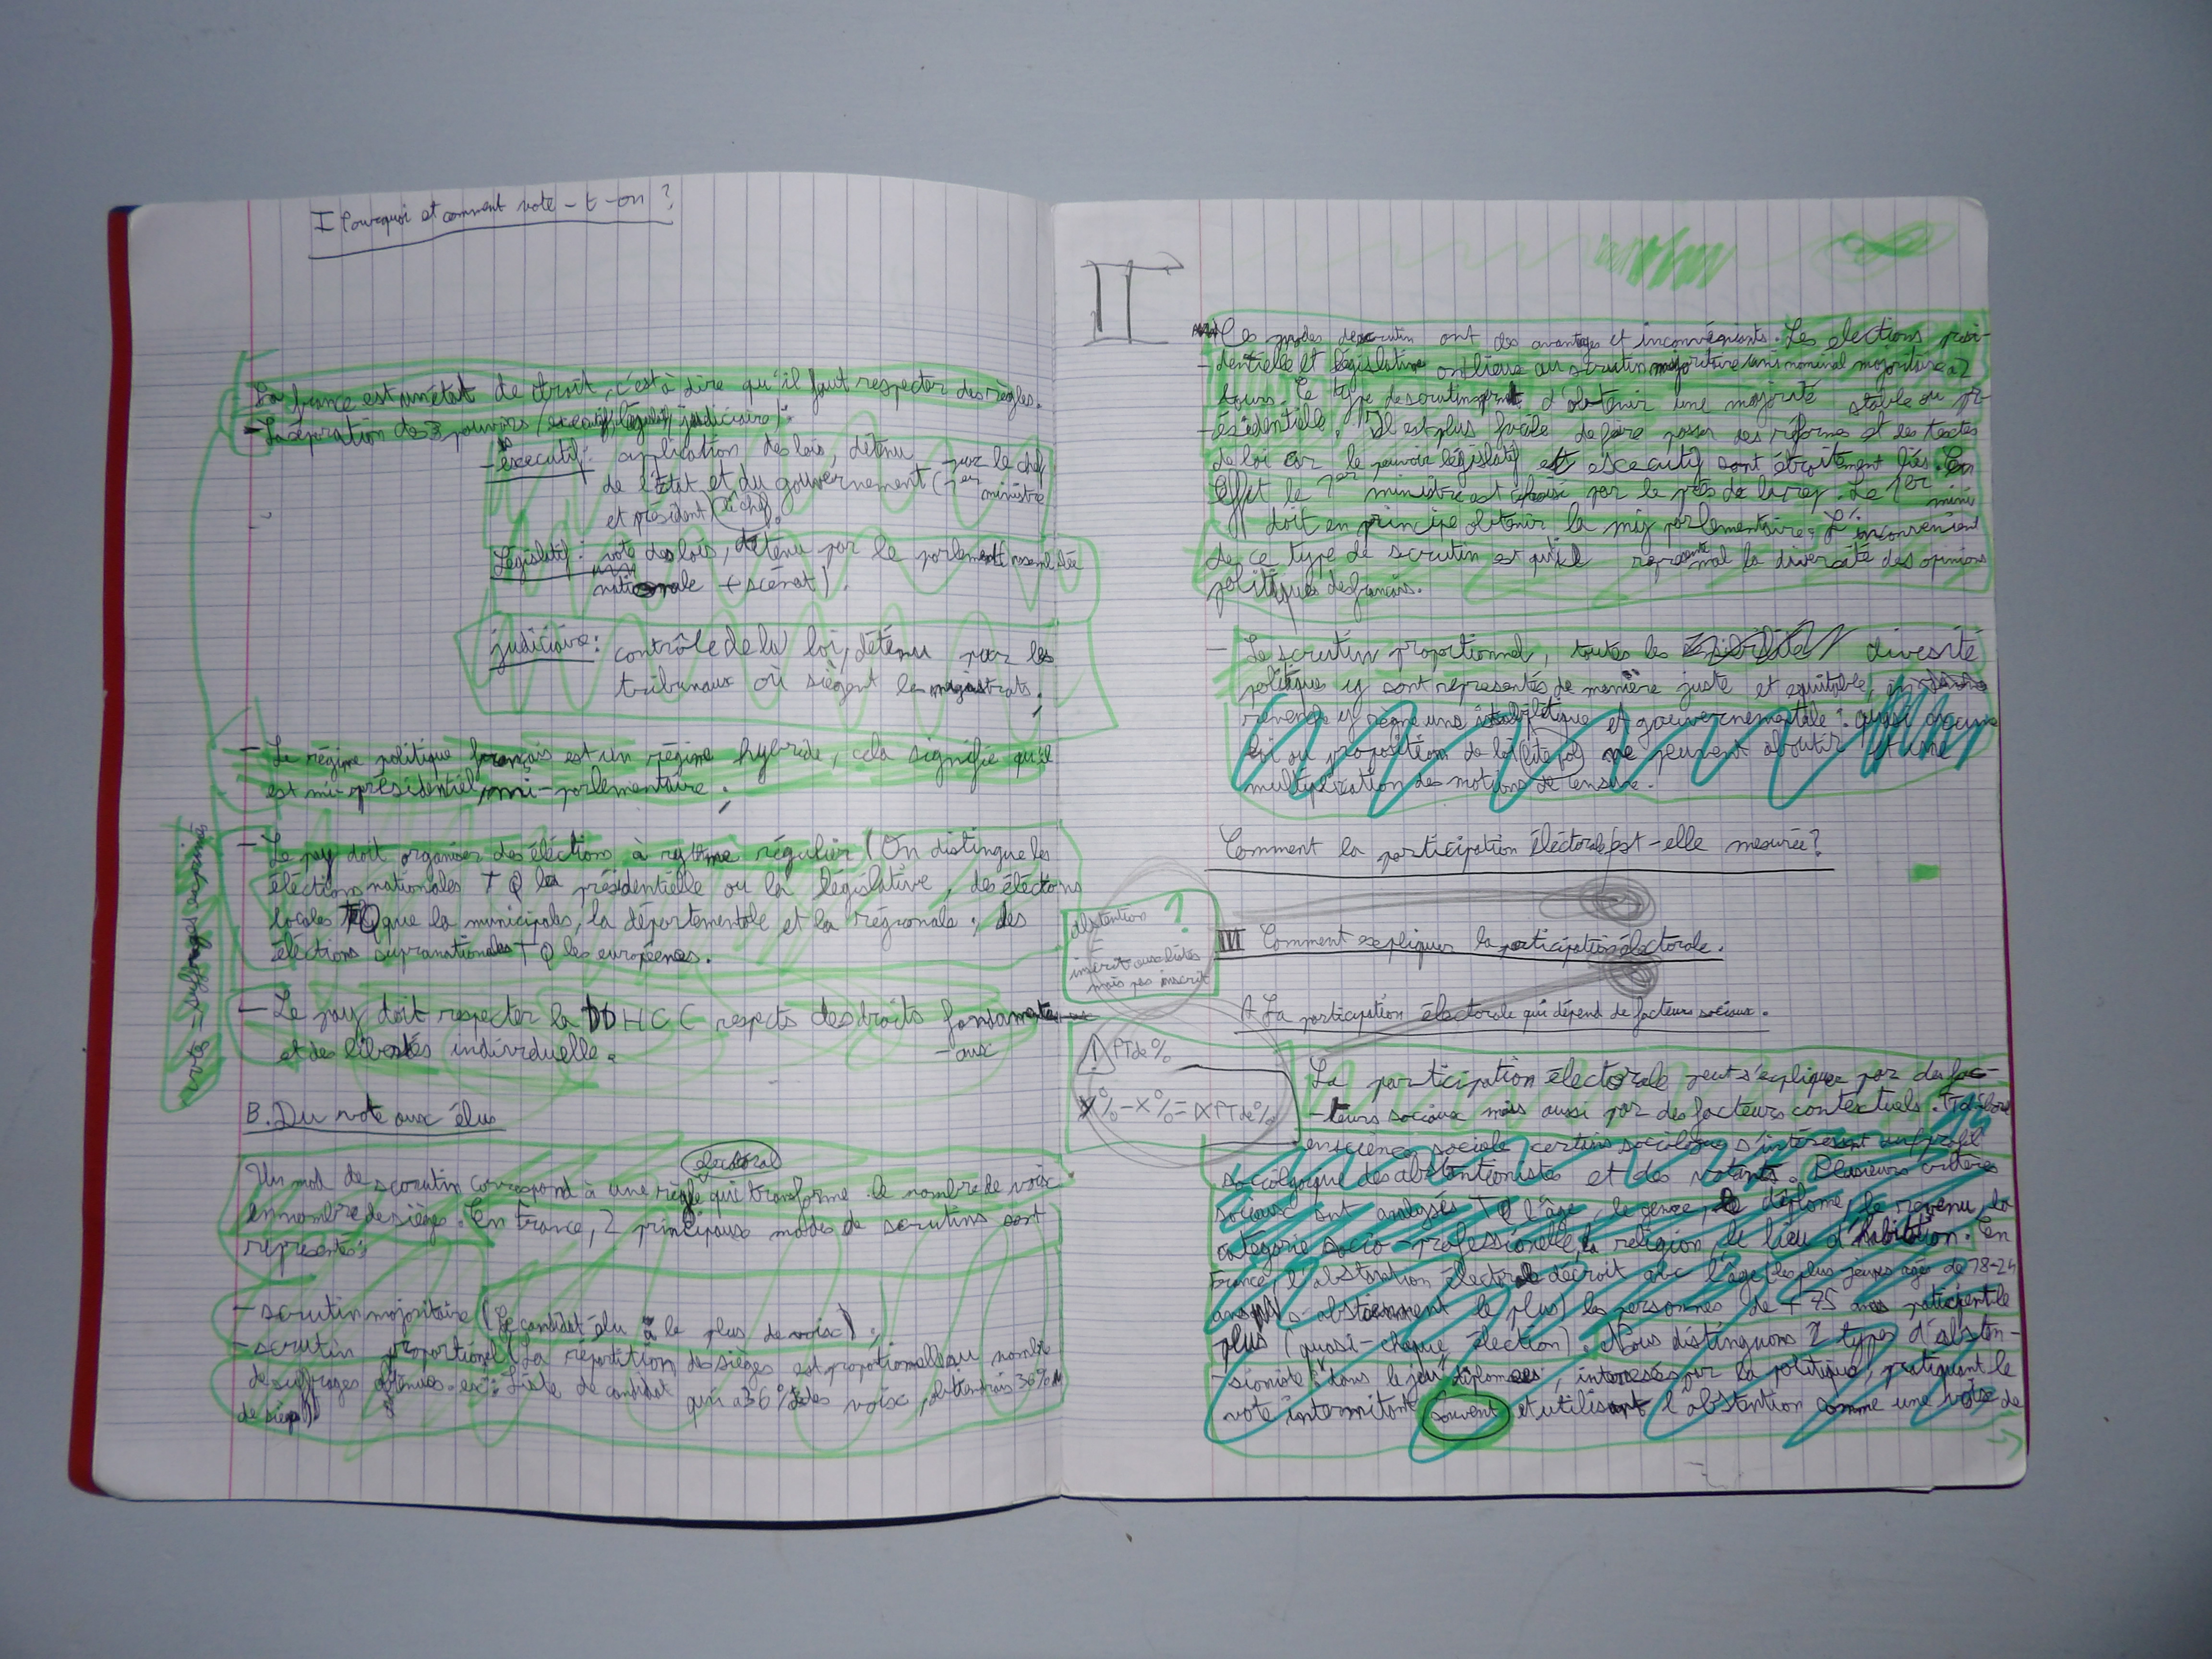 I Pourquoi et comment vote-t-on ?
La france est un état de droit, c'est à dire qu'il faut respecter des règles.
- La séparation des 3 pouvoirs (executif, législatif, judiciaire):
- executif: application des lois, détenu par le chef
de l'État et du gouvernement (1er ministre
et président) (le chef.
Législatif: vote des lois, détenu par le parlement
nationale + scénat).
judiciaire: contrôle de la loi, détenu par les
tribunaux où siègent les magistrats.
- Le régime politique français est un régime hybride, cela signifie qu'il
est mi-présidentiel, mi-parlementaire.
- Le pay doit organiser des éléctions à rytme régulier (On distingue les
éléctions nationales T Q la présidentielle ou la législative, des éléctions
locales TQ que la municipales, la départementale et la régionale; des
éléctions supranationales T Q les européenes.
votes = suffrages exprimés
- Le pay doit respecter la DDHC ( respects des droits fondamente
-aux
et des libertés individuelle.
B. Du vote aux élus
électoral
Un mod de scrutin correspond à une règle qui transforme le nombre de voix
en nombre de sièges. En France, 2 principaux modes de scrutins sont
représentés:
- scrutin majoritaire (Le candidat élu a le plus de voix);
- scrutin proportionel (La répartition des sièges est proportionelle au nombre
de suffrages obtenues. ex: Liste de candidat qui a 36% des voix, obtiendrais 36%
de sièges)
II
Ces modes de scrutin ont des avantages et inconvégniants. Les elections prési-
-dentielle et législative ont lieux au scrutin majoritaire uninominal majoritaire a 2
tours. Ce type de scrutin permet d'obtenir une majorité stable ou pr-
-ésidentielle. Il est plus facile de faire passer des réformes et des textes
de loi car le pouvoir législatif et escecutif sont étroitement liés. En
effet le 1er ministre est choisi par le prés de la rep. Le 1er mini
doit en principe obtenir la maj parlementaire. L'inconvenient
de ce type de scrutin est qu'il représente mal la diversité des opinions
politiques des français.
- Le scrutin proportionnel, toutes les divesité
politique y sont représentés de manière juste et equitable, en
revenche y règne une et gouvernementale: aucun
ou proposition de loi ne peuvent aboutir et une
multiplication des motions de censure.
Comment la participation électorale est-elle mesurée?
abstention ?
=
inscrit aux listes
mais pas inscrit
III Comment expliquer la participation électorale.
A La participation électorale qui dépend de facteurs sociaux.
⚠ PT de %
X% - X% = X PT de %
La participation électorale peut s'expliquer par des fac-
-teurs sociaux mais aussi par des facteurs contextuels. Tt d'abord
en science sociale certains sociologues s'intéressent au profil
sociologique des abstentionistes et des votants. Plusieurs critères
sociaux sont analysés TQ l'âge, le genre, le diplome, le revenu, la
catégorie socio-professionelle, la religion, le lieu d'habitation. En
France, l'abstention électorale décroit avec l'âge (les plus jeunes agés de 18-24
ans s'abstiennent le plus) les personnes de + 75 ans participent le
plus (quasi-chaque élection). Nous distinguons 2 types d'absten-
-sioniste: "dans le jeu" diplomés, interessés par la politique, pratiquant le
vote intermitant souvent et utilisant l'abstention comme une voix de
→